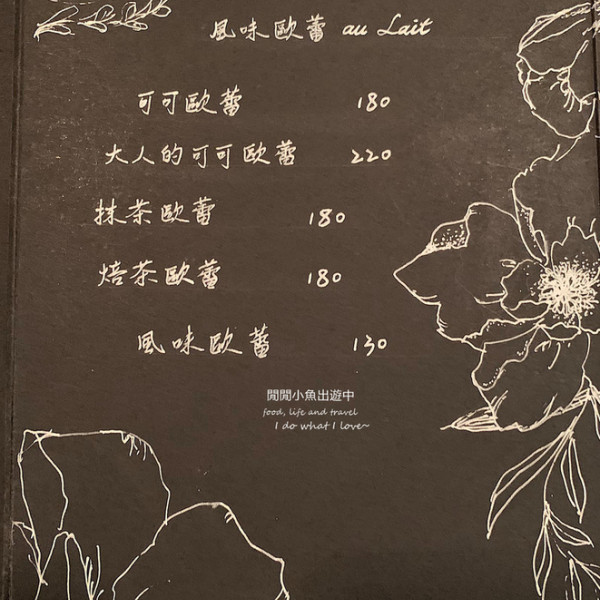 風味歐蕾 au Lait
可可歐蕾 180
大人的可可歐蕾 220
抹茶歐蕾 180
焙茶歐蕾 180
風味歐蕾 130
閒閒小魚出遊中
food, life and travel
I do what I love~